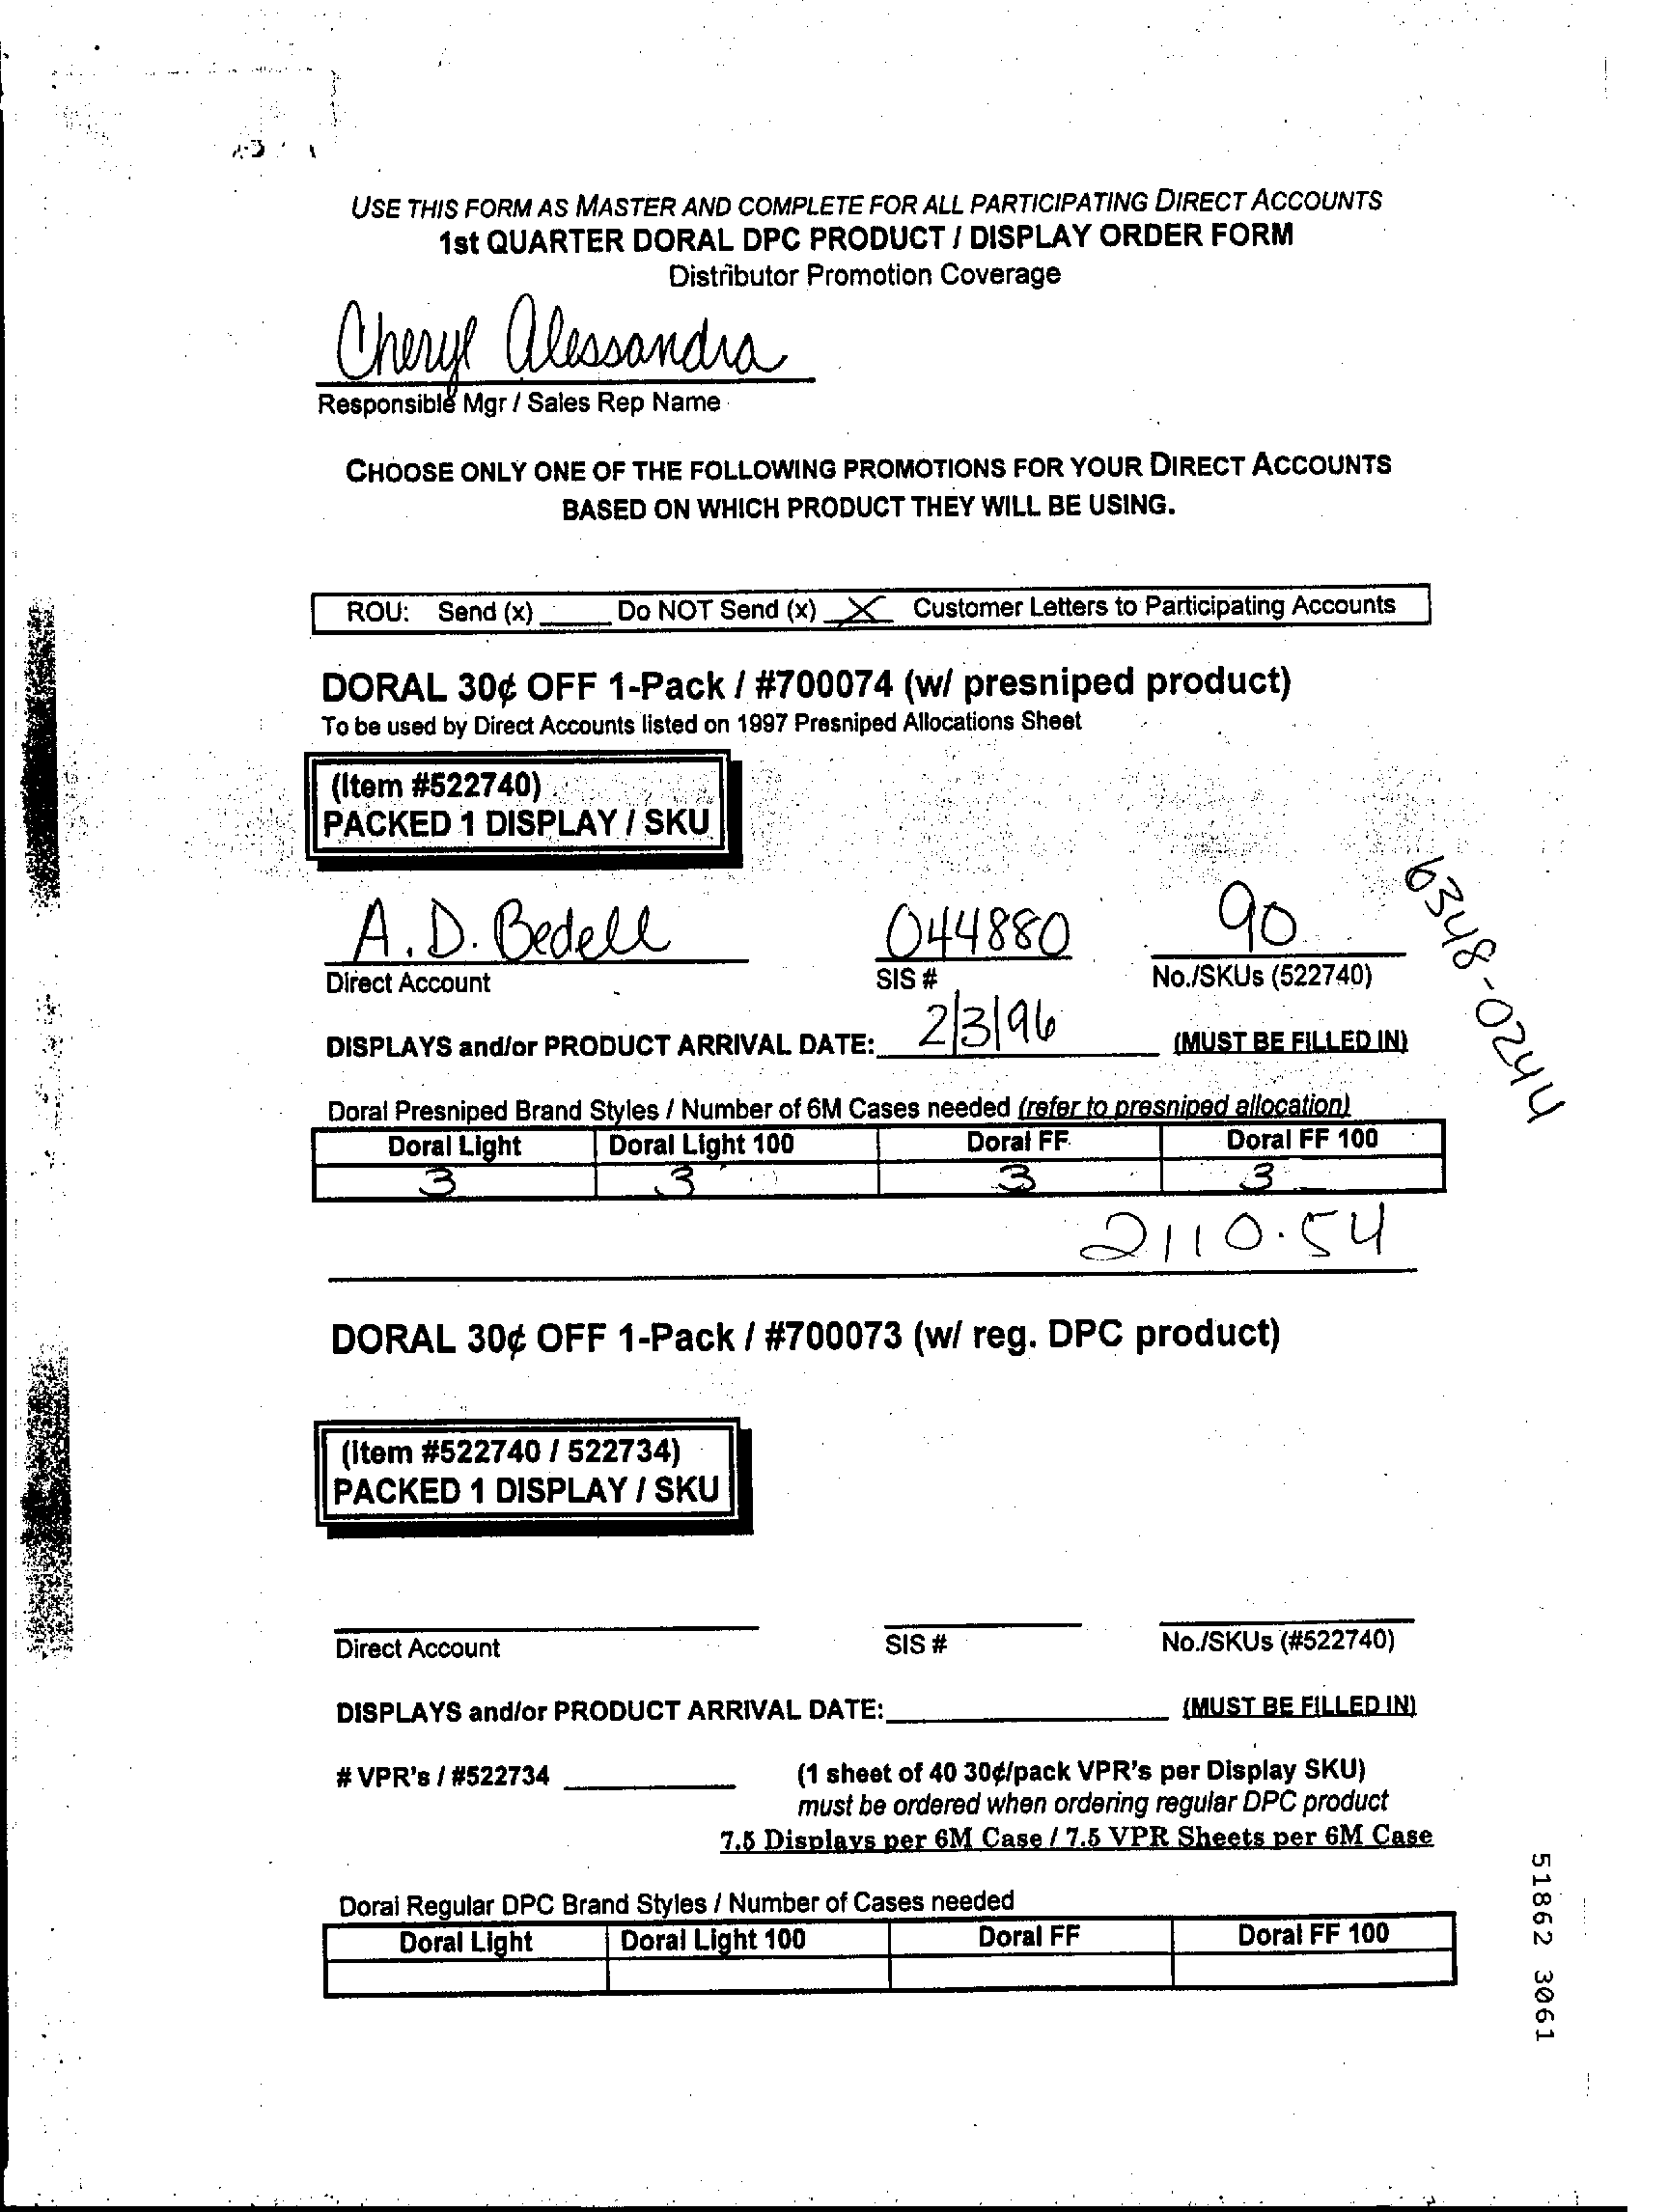 USE THIS FORM AS MASTER AND COMPLETE FOR ALL PARTICIPATING DIRECT ACCOUNTS
1st QUARTER DORAL DPC PRODUCT / DISPLAY ORDER FORM
Distributor Promotion Coverage
Cheryl Alessandra
Responsible Mgr / Sales Rep Name
CHOOSE ONLY ONE OF THE FOLLOWING PROMOTIONS FOR YOUR DIRECT ACCOUNTS
BASED ON WHICH PRODUCT THEY WILL BE USING.
ROU: Send (x) _____ Do NOT Send (x) X Customer Letters to Participating Accounts
DORAL 30¢ OFF 1-Pack / #700074 (w/ presniped product)
To be used by Direct Accounts listed on 1997 Presniped Allocations Sheet
(Item #522740)
PACKED 1 DISPLAY / SKU
A.D. Bedell 044880 90
Direct Account SIS # No./SKUs (522740)
6348-0244
DISPLAYS and/or PRODUCT ARRIVAL DATE: 2/3/96 (MUST BE FILLED IN)
Doral Presniped Brand Styles / Number of 6M Cases needed (refer to presniped allocation)
Doral Light Doral Light 100 Doral FF Doral FF 100
3 3 3 3
2110.54
DORAL 30¢ OFF 1-Pack / #700073 (w/ reg. DPC product)
(Item #522740 / 522734)
PACKED 1 DISPLAY / SKU
Direct Account SIS # No./SKUs (#522740)
DISPLAYS and/or PRODUCT ARRIVAL DATE:__________ (MUST BE FILLED IN)
# VPR's / #522734 __________ (1 sheet of 40 30¢/pack VPR's per Display SKU)
must be ordered when ordering regular DPC product
7.5 Displays per 6M Case / 7.5 VPR Sheets per 6M Case
Doral Regular DPC Brand Styles / Number of Cases needed
Doral Light Doral Light 100 Doral FF Doral FF 100
51862 3061